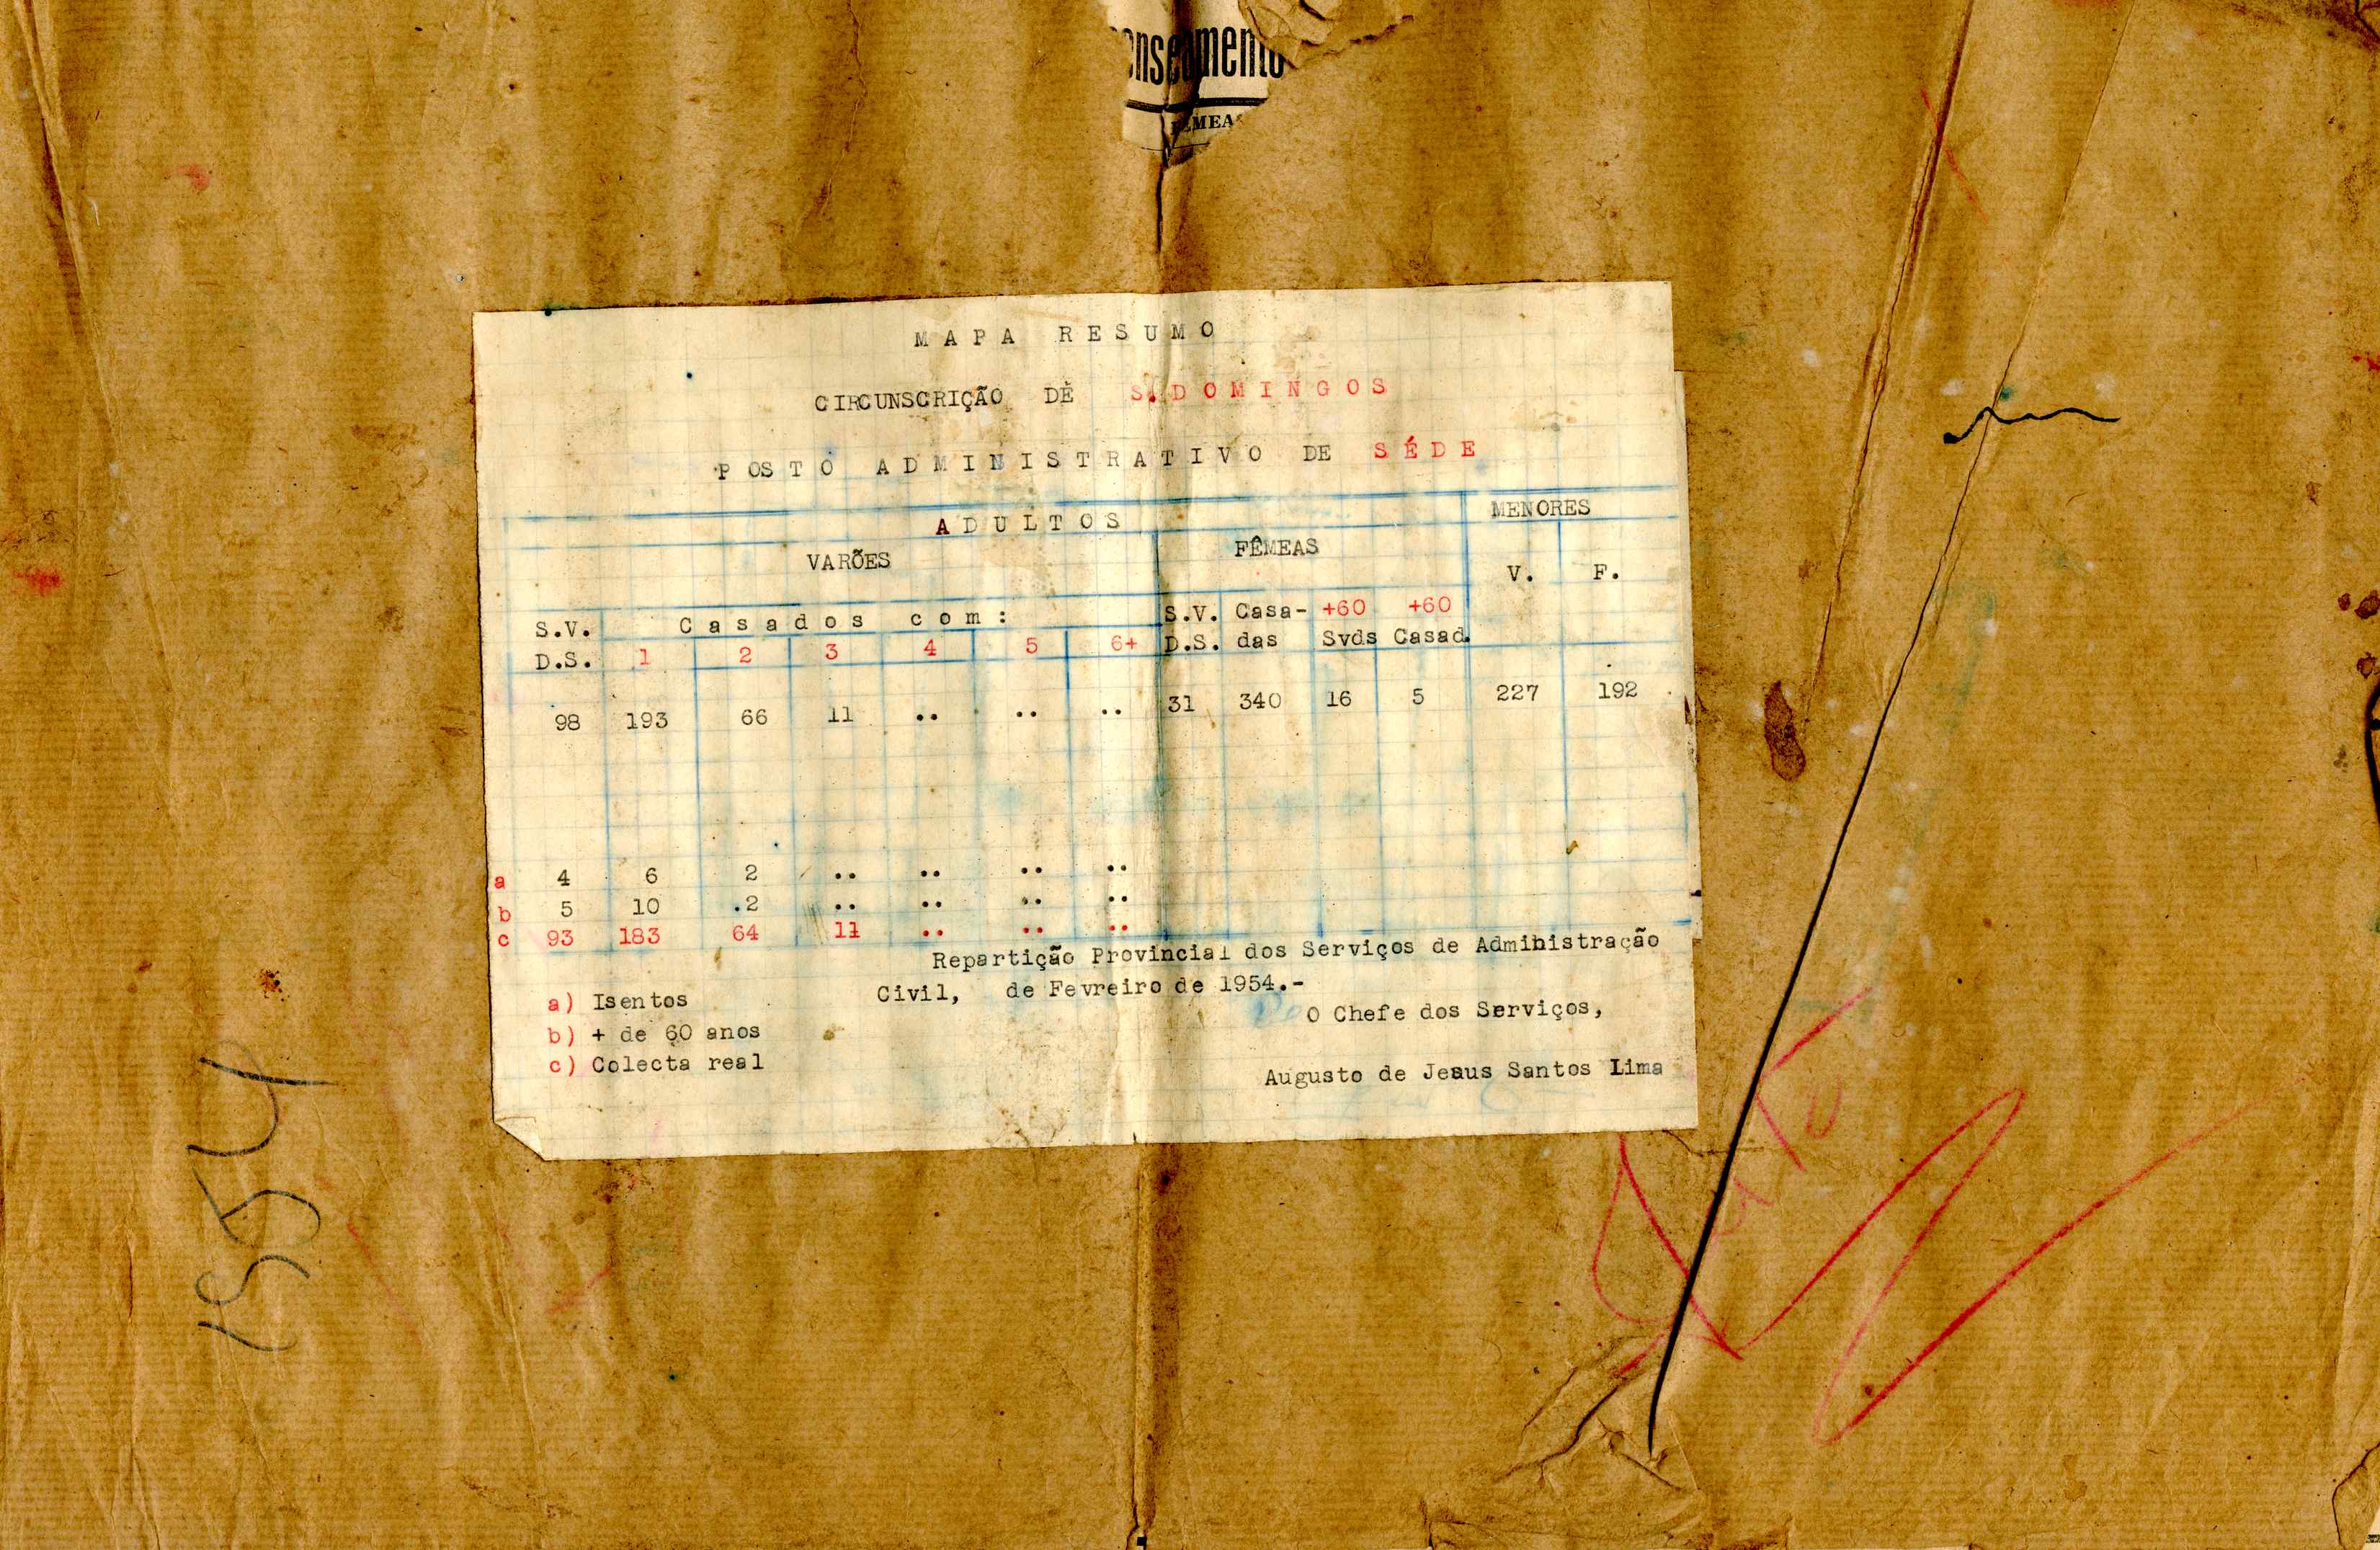 enseamento
FÊMEAS
MAPA RESUMO
CIRCUNSCRIÇÃO DE S. DOMINGOS
POSTO ADMINISTRATIVO DE SÉDE
ADULTOS MENORES
VARÕES FÊMEAS V. F.
S.V. Casados com: S.V. Casa- +60 +60
D.S. 1 2 3 4 5 6+ D.S. das Svds Casad.
98 193 66 11 .. .. .. 31 340 16 5 227 192
a 4 6 2 .. .. .. ..
b 5 10 .2 .. .. .. ..
c 93 183 64 11 .. .. ..
Repartição Provincial dos Serviços de Admihistração
Civil, de Fevreiro de 1954.-
a) Isentos
b) + de 60 anos
c) Colecta real
O Chefe dos Serviços,
Augusto de Jesus Santos Lima
1954